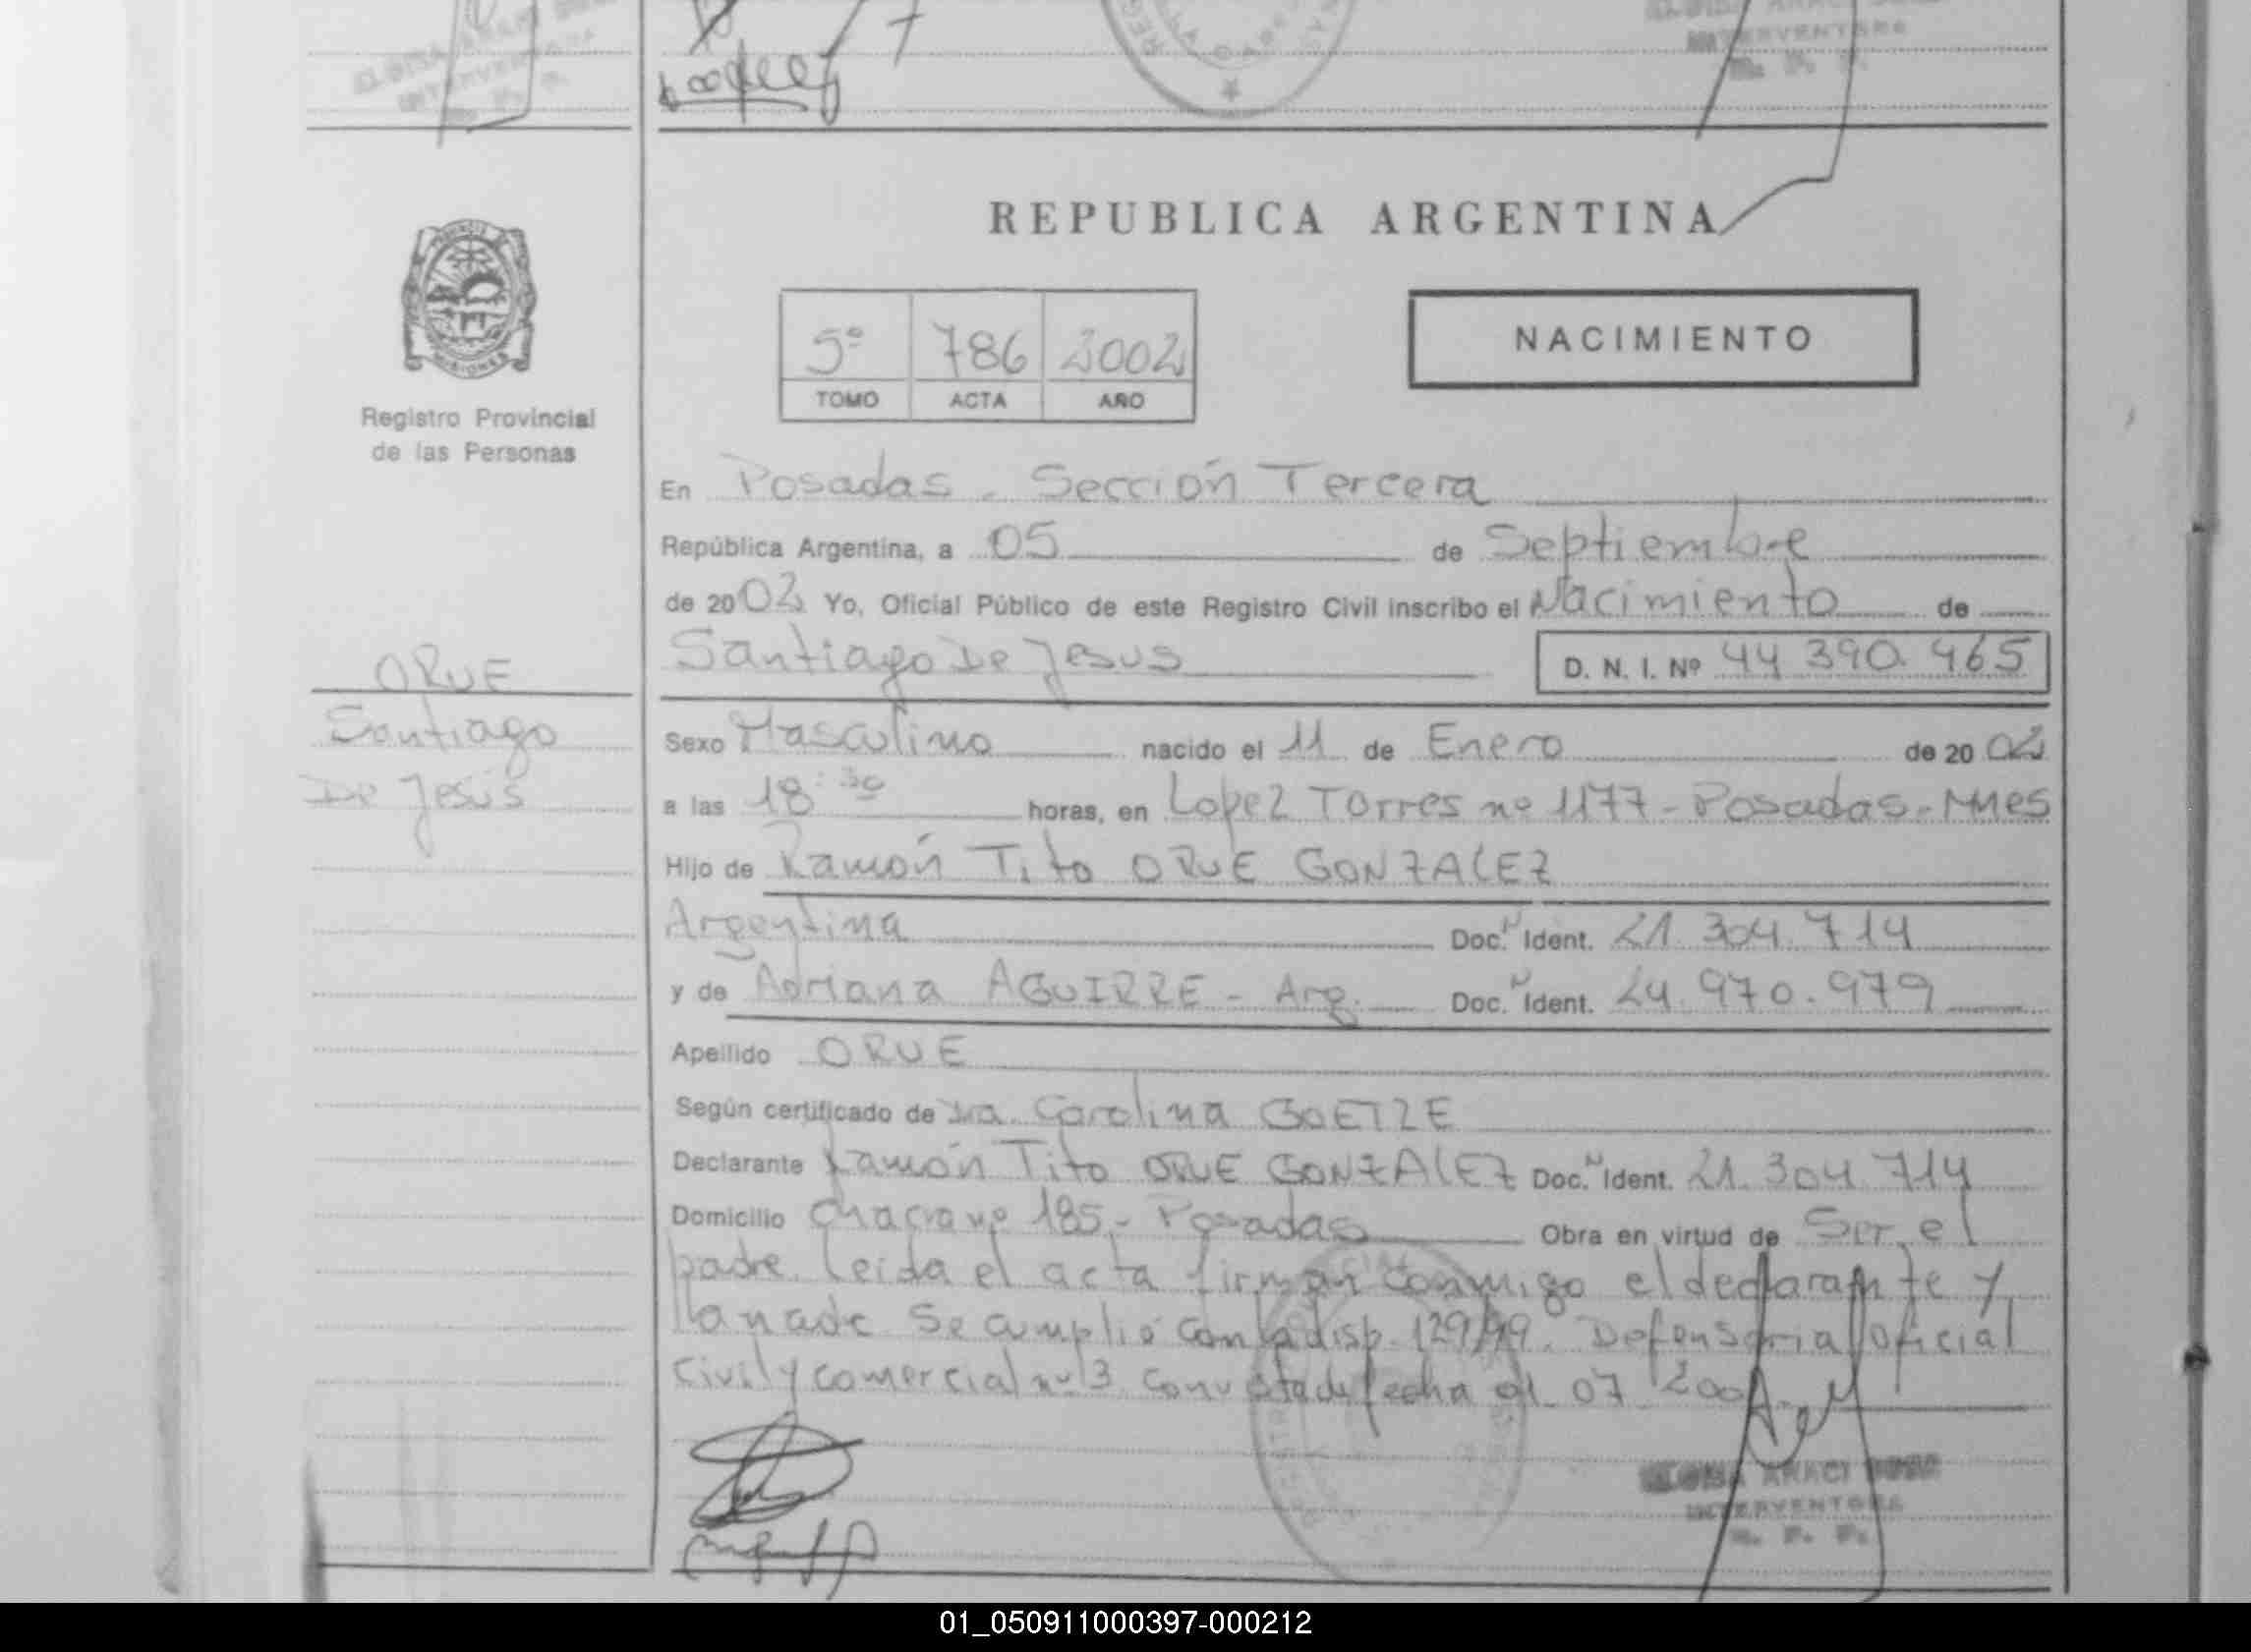 INTERVENTORA
INTERVENTORA
REPUBLICA ARGENTINA
5º 786 2002
TOMO ACTA AÑO
NACIMIENTO
Registro Provincial
de las Personas
ORUE
Santiago
De Jesús
En Posadas - Sección Tercera
República Argentina, a 05 de Septiembre
de 2002 Yo, Oficial Público de este Registro Civil inscribo el Nacimiento de
Santiago De Jesus D. N. I. Nº 44 390. 465
Sexo Masculino nacido el 11 de Enero de 20 02
a las 18:30 horas, en Lopez Torres nº 1177 - Posadas - Mnes
Hijo de Ramón Tito ORUE GONZALEZ
Argentina Doc. N Ident. 21. 304. 714
y de Adriana AGUIRRE - Arg. Doc. N Ident. 24. 970. 979
Apellido ORUE
Según certificado de Dra. Carolina GOETZE
Declarante Ramón Tito ORUE GONZALEZ Doc. N Ident. 21. 304. 714
Domicilio Chacra nº 185 - Posadas Obra en virtud de Ser el
padre. Leida el acta firman conmigo el declarante y
la madre Se cumplió con la disp. 129/99. Defensoria Oficial
Civil y comercial nº 3 con vista de fecha 01 07
ARACI
INTERVENTORA
R. P. P.
01_050911000397-000212